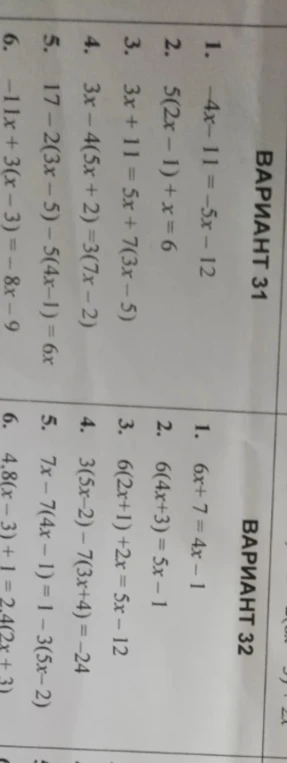 ВАРИАНТ 31
1. –4x – 11 = –5x – 12
2. 5(2x – 1) + x = 6
3. 3x + 11 = 5x + 7(3x – 5)
4. 3x – 4(5x + 2) =3(7x – 2)
5. 17 – 2(3x – 5) – 5(4x–1) = 6x
6. –11x + 3(x – 3) = – 8x – 9
ВАРИАНТ 32
1. 6x+ 7 = 4x – 1
2. 6(4x+3) = 5x – 1
3. 6(2x+1) +2x = 5x – 12
4. 3(5x–2) – 7(3x+4) = –24
5. 7x – 7(4x – 1) = 1 – 3(5x– 2)
6. 4,8(x – 3) + 1 = 2,4(2x + 3)